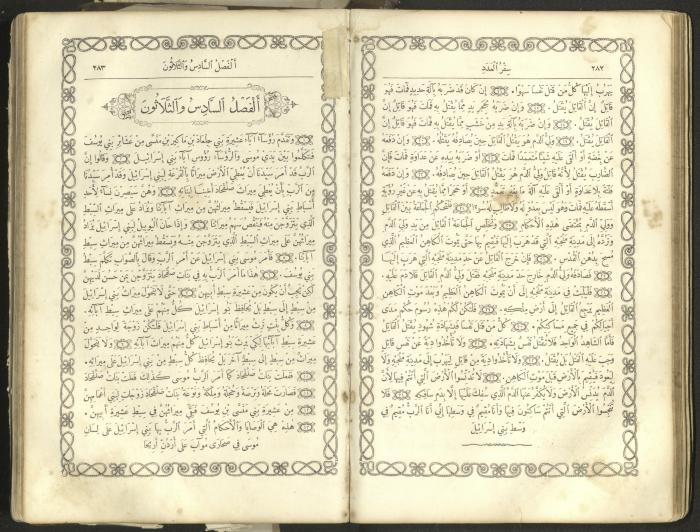 ٢٨٢
سفر العدد
يهرب إليها كل من قتل نفسا سهوا. إن كان قد ضربه بآلة حديد فمات فهو
قاتل إن القاتل يقتل. وإن ضربه بحجر يد مما يقتل به فمات فهو قاتل إن
القاتل يقتل. وإن ضربه بآلة يد من خشب مما يقتل به فمات فهو قاتل إن
القاتل يقتل. ولي الدم هو يقتل القاتل حين يصادفه يقتله. وإن دفعه
عن بغضة أو ألقى عليه شيئا متعمدا فمات أو ضربه بيده عن عداوة فمات فإن
الضارب يقتل لأنه قاتل ولي الدم هو يقتل القاتل حين يصادفه. وإن دفعه
بلا عداوة أو ألقى عليه آلة ما بغير تعمد أو حجرا مما يقتل به عن غير رؤية
أسقطه عليه فمات وهو ليس بعدو له ولا طالب له سوءا فلتحكم الجماعة بين القاتل
وولي الدم بمقتضى هذه الأحكام وتخلص الجماعة القاتل من يد ولي الدم
وترده إلى مدينة ملجئه التي هرب إليها فيقيم بها حتى يموت الكاهن العظيم الذي
مسح بدهن القدس. فإن خرج القاتل عن حدود مدينة ملجئه التي هرب إليها
فصادفه ولي الدم خارج حد مدينة ملجئه فقتل ولي الدم القاتل فلا دم عليه.
فليلبث في مدينة ملجئه إلى أن يموت الكاهن العظيم وبعد موت الكاهن
العظيم يرجع القاتل إلى أرض ملكه. فلتكن لكم هذه رسوم حكم مدى
أجيالكم في جميع مساكنكم. كل من قتل نفسا فبشهادة شهود يقتل القاتل
فأما الشاهد الواحد فلا تقتل نفس بشهادته. ولا تأخذوا دية عن نفس قاتل
وجب عليه القتل بل يقتل. ولا تأخذوا دية من قاتل ليهرب إلى مدينة ملجئه ولا
ليعود فيقيم بالأرض قبل موت الكاهن. لا تدنسوا الأرض التي أنتم فيها لأن
الدم يدنس الأرض ولا يكفر عنها الدم الذي سفك عليها إلا بدم سافكه. فلا
تنجسوا الأرض التي أنتم ساكنون فيها وأنا مقيم في وسطها إني أنا الرب مقيم في
وسط بني إسرائيل
الفصل السادس والثلاثون
٢٨٣
الفصل السادس والثلاثون
وتقدم رؤساء آباء عشيرة بني جلعاد بن ماكير بن منسى من عشائر بني يوسف
فتكلموا بين يدي موسى والرؤساء رؤوس آباء بني إسرائيل وقالوا إن
الرب قد أمر سيدنا أن يعطي الأرض ميراثا بالقرعة لبني إسرائيل وقد أمر سيدنا
من الرب بأن يعطي ميراث صلفحاد أخينا لبناته وهن سيصرن نساء لأحد
أسباط بني إسرائيل فيسقط ميراثهن من ميراث آبائنا ويزاد على ميراث السبط
الذي يتزوجن منه فينقص سهم ميراثنا وإذا حان اليوبيل لبني إسرائيل يزاد
ميراثهن على ميراث السبط الذي يتزوجن منه ويسقط ميراثهن من ميراث سبط
آبائنا. فأمر موسى بني إسرائيل عن أمر الرب وقال بالصواب تكلم سبط
بني يوسف. هذا ما أمر الرب به في بنات صلفحاد يتزوجن بمن حسن لديهن
لكن يجب أن يكون من عشيرة سبط أبيهن حتى لا يتحول ميراث بني إسرائيل
من سبط إلى سبط بل يحافظ بنو إسرائيل كل منهم على ميراث سبط آبائه.
وكل بنت ترث ميراثا من أسباط بني إسرائيل فلتكن زوجة لواحد من
عشيرة سبط آبائها لكي يرث بنو إسرائيل كل منهم ميراث آبائه ولا يتحول
ميراث من سبط إلى سبط آخر بل يحافظ كل سبط من بني إسرائيل على ميراثه.
فعملت بنات صلفحاد كما أمر الرب موسى كذلك فعلت بنات صلفحاد
فصارت محلة وترصة وحجلة وملكة ونوعة بنات صلفحاد زوجات لبني أعمامهن
من عشيرة بني منسى بن يوسف فبقي ميراثهن في سبط عشيرة أبيهن.
هذه هي الوصايا والأحكام التي أمر الرب بها بني إسرائيل على لسان
موسى في صحارى موآب على أردن أريحا